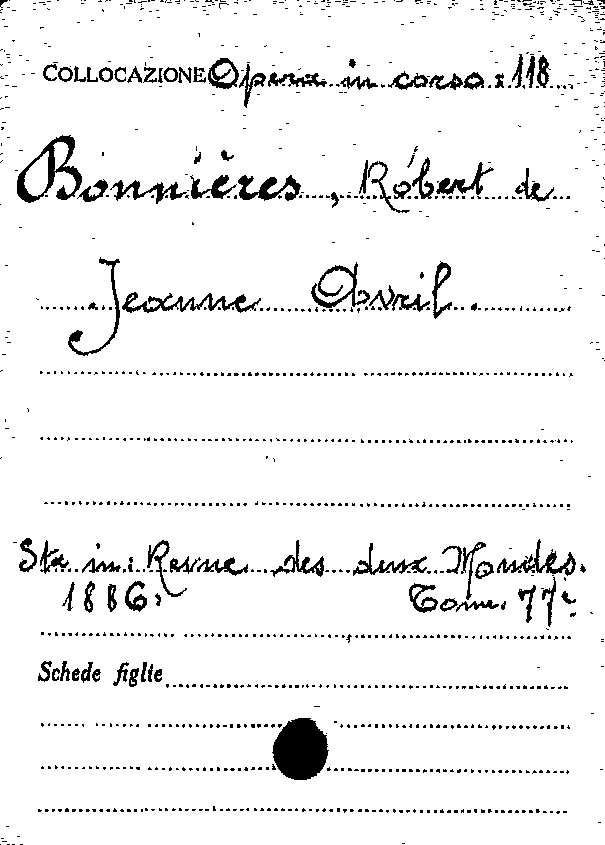 COLLOCAZIONE Opera in corso: 118
Bonnières, Robert de
Jeanne Avril.
Sta in: Revue des deux Mondes.
1886. Tome. 77e
Schede figlie